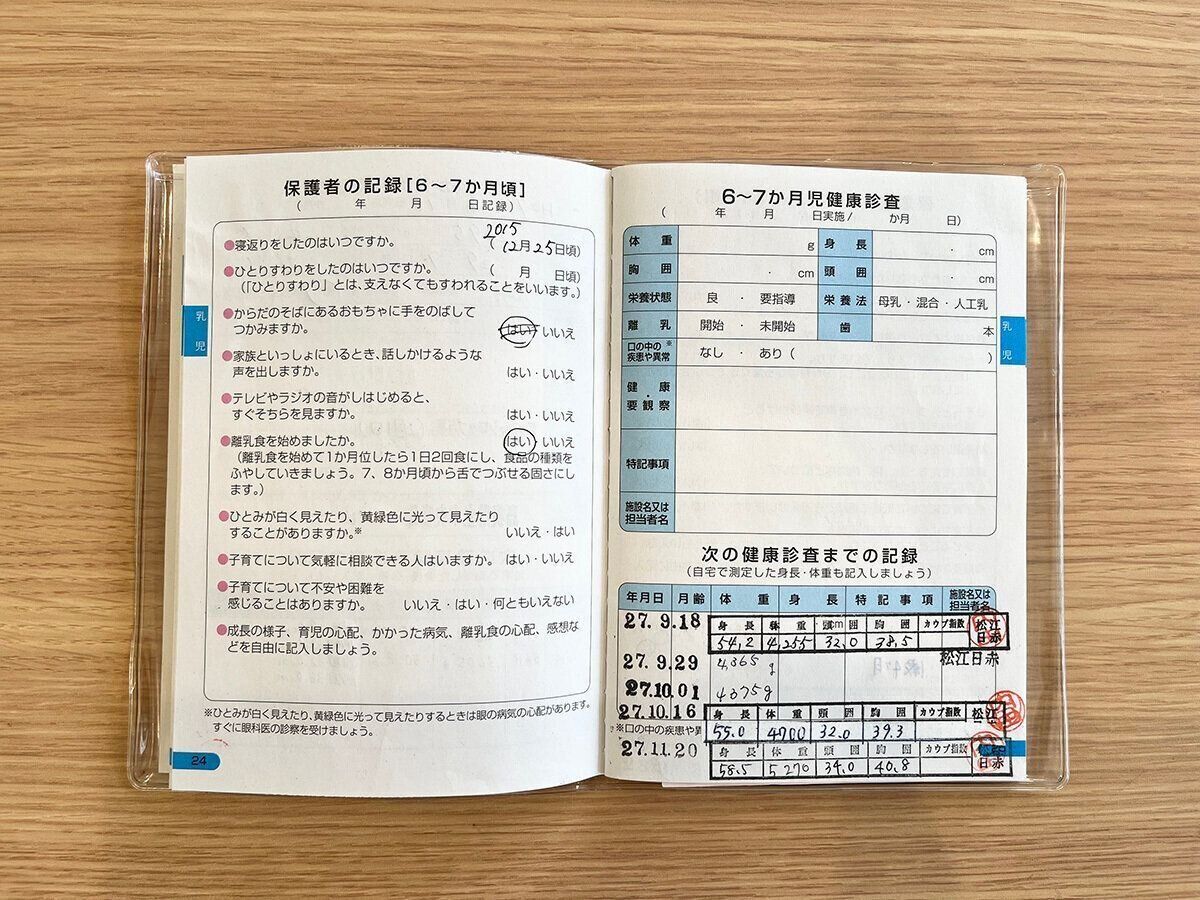 保護者の記録[6～7か月頃]
(　　年　　月　　日記録)
2015
●寝返りをしたのはいつですか。 (12月25日頃)
●ひとりすわりをしたのはいつですか。 (　月　日頃)
(「ひとりすわり」とは、支えなくてもすわれることをいいます。)
●からだのそばにあるおもちゃに手をのばして
つかみますか。 はい・いいえ
●家族といっしょにいるとき、話しかけるような
声を出しますか。 はい・いいえ
●テレビやラジオの音がしはじめると、
すぐそちらを見ますか。 はい・いいえ
●離乳食を始めましたか。 はい・いいえ
(離乳食を始めて1か月位したら1日2回食にし、食品の種類を
ふやしていきましょう。7、8か月頃から舌でつぶせる固さにし
ます。)
●ひとみが白く見えたり、黄緑色に光って見えたり
することがありますか。※ いいえ・はい
●子育てについて気軽に相談できる人はいますか。 はい・いいえ
●子育てについて不安や困難を
感じることはありますか。 いいえ・はい・何ともいえない
●成長の様子、育児の心配、かかった病気、離乳食の心配、感想な
どを自由に記入しましょう。
※ひとみが白く見えたり、黄緑色に光って見えたりするときは眼の病気の心配があります。
すぐに眼科医の診察を受けましょう。
24
乳児
6～7か月児健康診査
(　　年　　月　　日実施/　　か月　　日)
体重 g 身長 ・ cm
胸囲 ・ cm 頭囲 ・ cm
栄養状態 良・要指導 栄養法 母乳・混合・人工乳
離乳 開始・未開始 歯 本
口の中の※
疾患や異常 なし・あり(　　)
健康・
要観察
特記事項
施設名又は
担当者名
乳児
次の健康診査までの記録
(自宅で測定した身長・体重も記入しましょう)
年月日 月齢 体重 身長 特記事項 施設名又は
担当者名
27.9.18 身長 体重 頭囲 胸囲 カウプ指数 松江
54.2 4,255 32.0 38.5 日赤
27.9.29 4,365g 松江日赤
27.10.01 4375g
27.10.16 身長 体重 頭囲 胸囲 カウプ指数 松江
※口の中の疾患や異 55.0 4700 32.0 39.3
27.11.20 身長 体重 頭囲 胸囲 カウプ指数 松江
58.5 5270 34.0 40.8 日赤